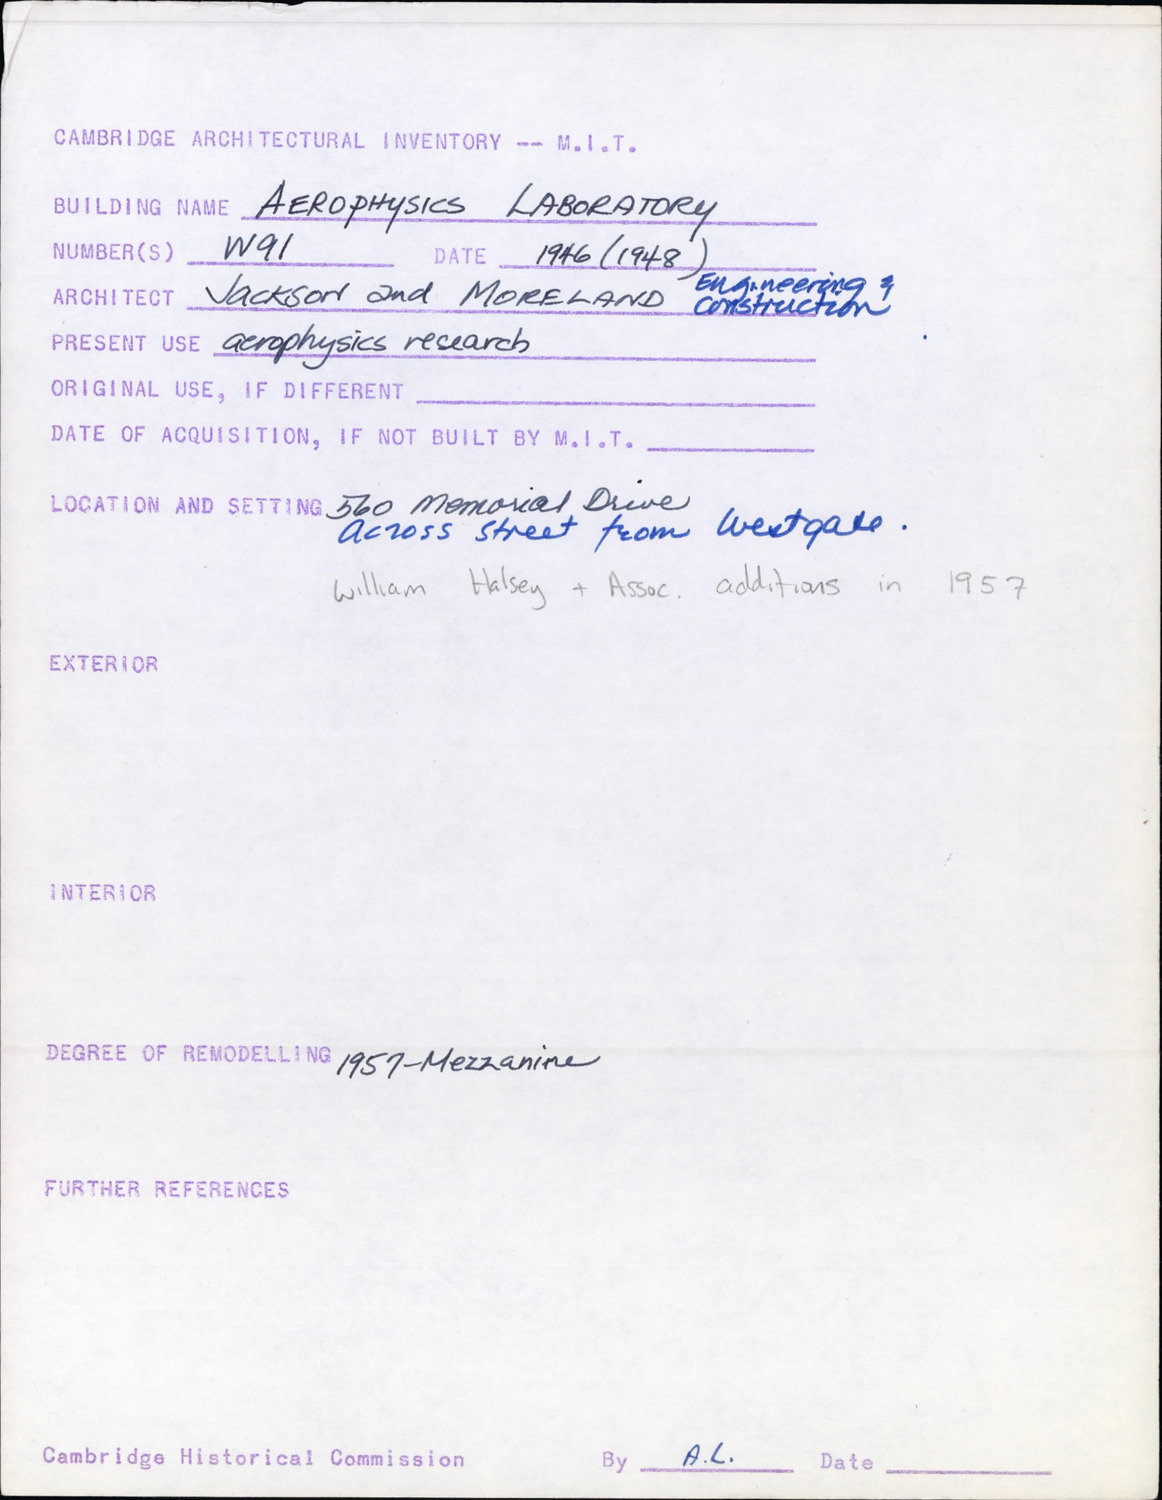 CAMBRIDGE ARCHITECTURAL INVENTORY -- M.I.T.
BUILDING NAME AEROPHYSICS LABORATORY
NUMBER(S) W91 DATE 1946 (1948)
ARCHITECT Jackson and MORELAND Engineering & Construction
PRESENT USE aerophysics research
ORIGINAL USE, IF DIFFERENT
DATE OF ACQUISITION, IF NOT BUILT BY M.I.T.
LOCATION AND SETTING 560 Memorial Drive
Across street from Westgate.
William Halsey + Assoc. additions in 1957
EXTERIOR
INTERIOR
DEGREE OF REMODELLING 1957-Mezzanine
FURTHER REFERENCES
Cambridge Historical Commission By A.L. Date